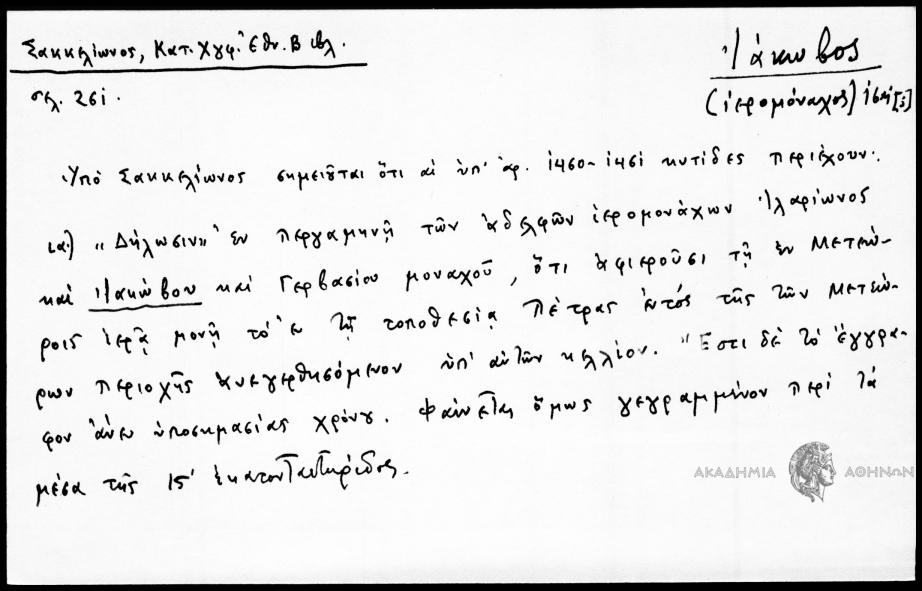 Σακκελίωνος, Κατ. Χγφ. Ἐθν. Βιβλ.
Ἰάκωβος
σελ. 261.
(ἱερομόναχος)
Ὑπὸ Σακκελίωνος σημειοῦται ὅτι αἱ ὑπ' ἀρ. 1460-1461 κυτίδες περιέχουν:
ια) "Δήλωσιν" ἐν περγαμηνῇ τῶν ἀδελφῶν ἱερομονάχων Ἰλαρίωνος
καὶ Ἰακώβου καὶ Γερβασίου μοναχοῦ, ὅτι ἀφιεροῦσι τῇ ἐν Μετεώ-
ροις ἱερᾷ μονῇ τὸ ἐν τῇ τοποθεσίᾳ Πέτρας ἐντός τῆς τῶν Μετεώ-
ρων περιοχῆς ἀνεγερθησόμενον ὑπ' αὐτῶν κελλίον. "Ἔστι δὲ τὸ ἔγγρα-
φον ἄνευ ὑποσημασίας χρόνου. Φαίνεται ὅμως γεγραμμένον περὶ τὰ
μέσα τῆς 15' ἑκατονταετηρίδος.
ΑΚΑΔΗΜΙΑ ΑΘΗΝΩΝ